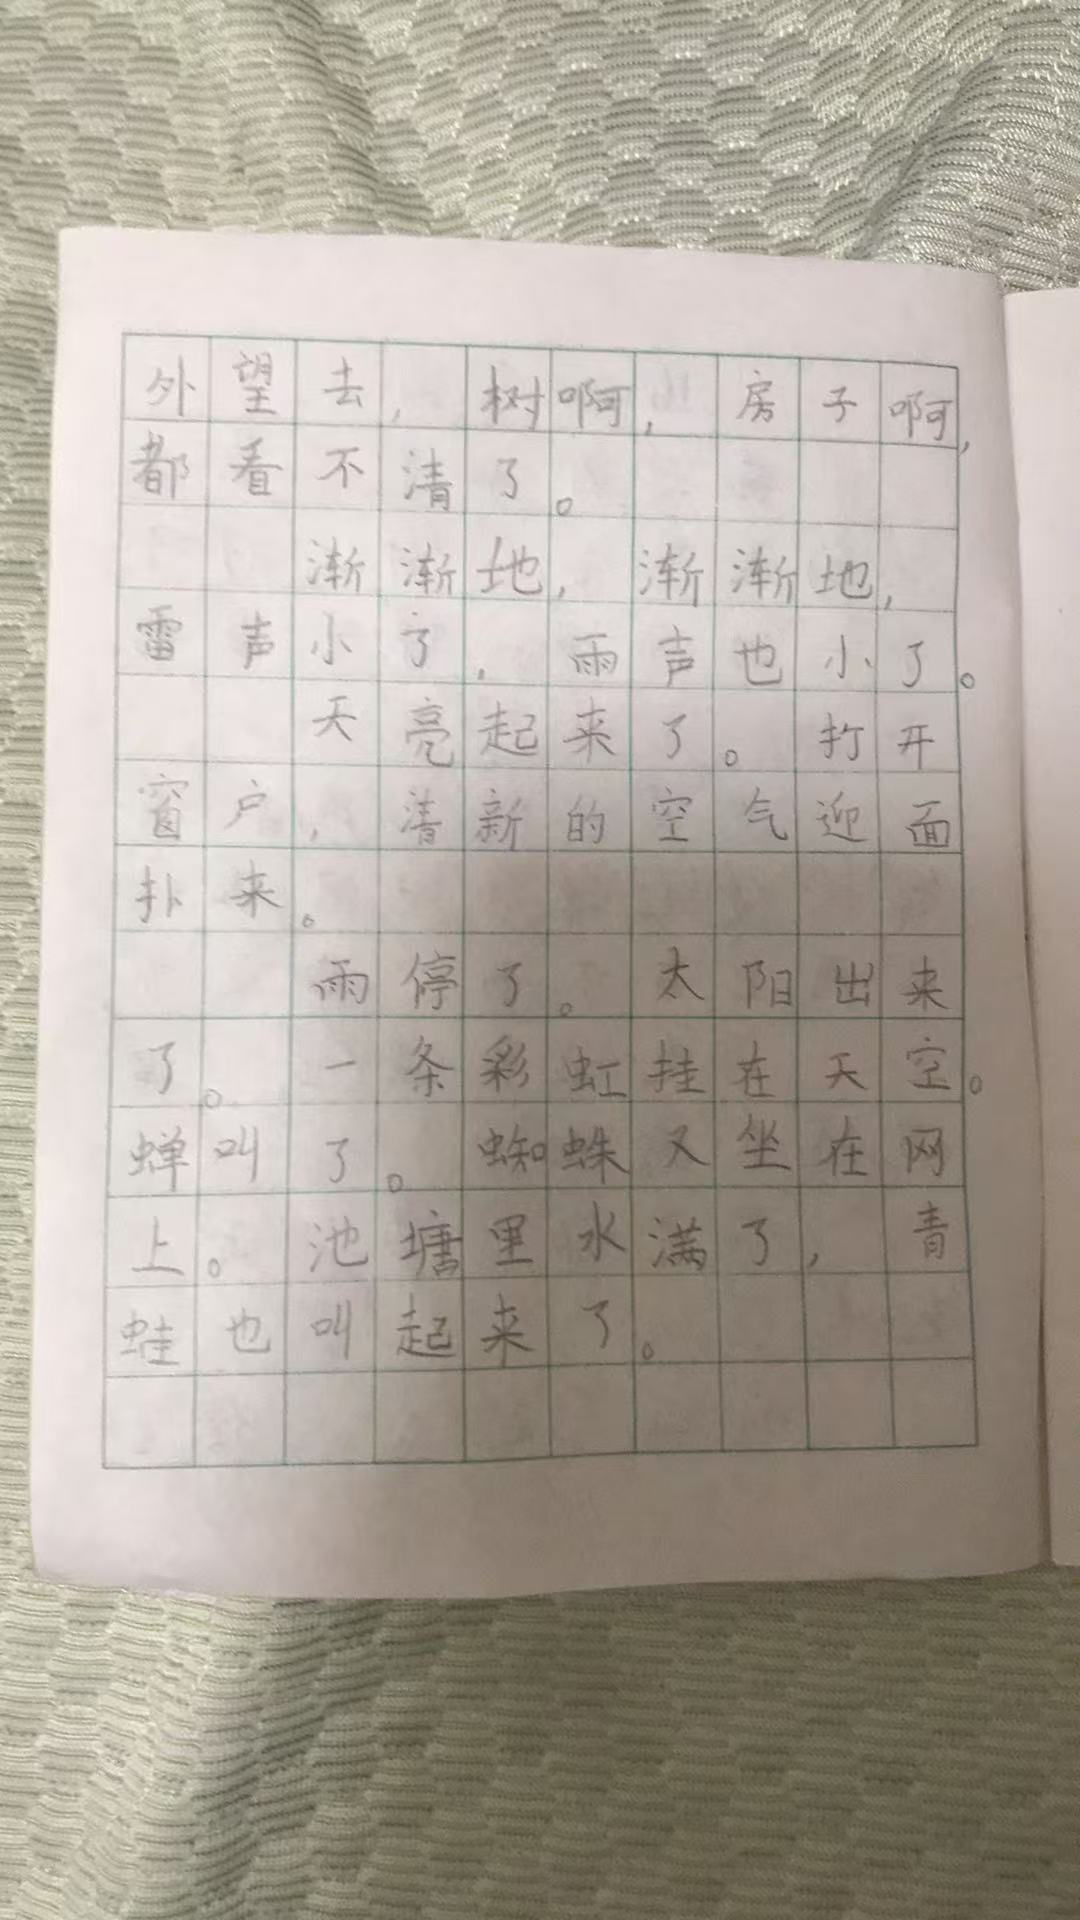 外望去，树啊，房子啊，
都看不清了。
渐渐地，渐渐地，
雷声小了，雨声也小了。
天亮起来了。打开
窗户，清新的空气迎面
扑来。
雨停了。太阳出来
了。一条彩虹挂在天空。
蝉叫了。蜘蛛又坐在网
上。池塘里水满了，青
蛙也叫起来了。